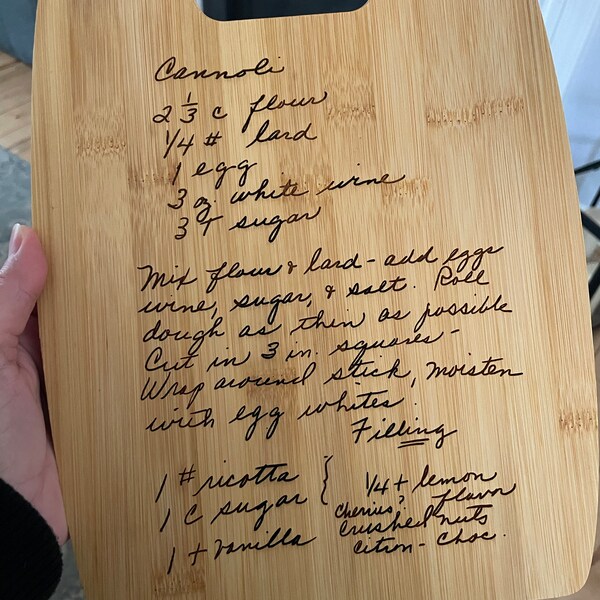 Cannoli
2 1/3 c flour
1/4 # lard
1 egg
3 oz. white wine
3 T sugar
Mix flour & lard - add eggs
wine, sugar, & salt. Roll
dough as thin as possible
Cut in 3 in. squares -
Wrap around stick, moisten
with egg whites.
Filling
1 # ricotta
1 c sugar
1 t vanilla
{
1/4 t lemon
flavor
Cherries?
crushed nuts
citron - choc.